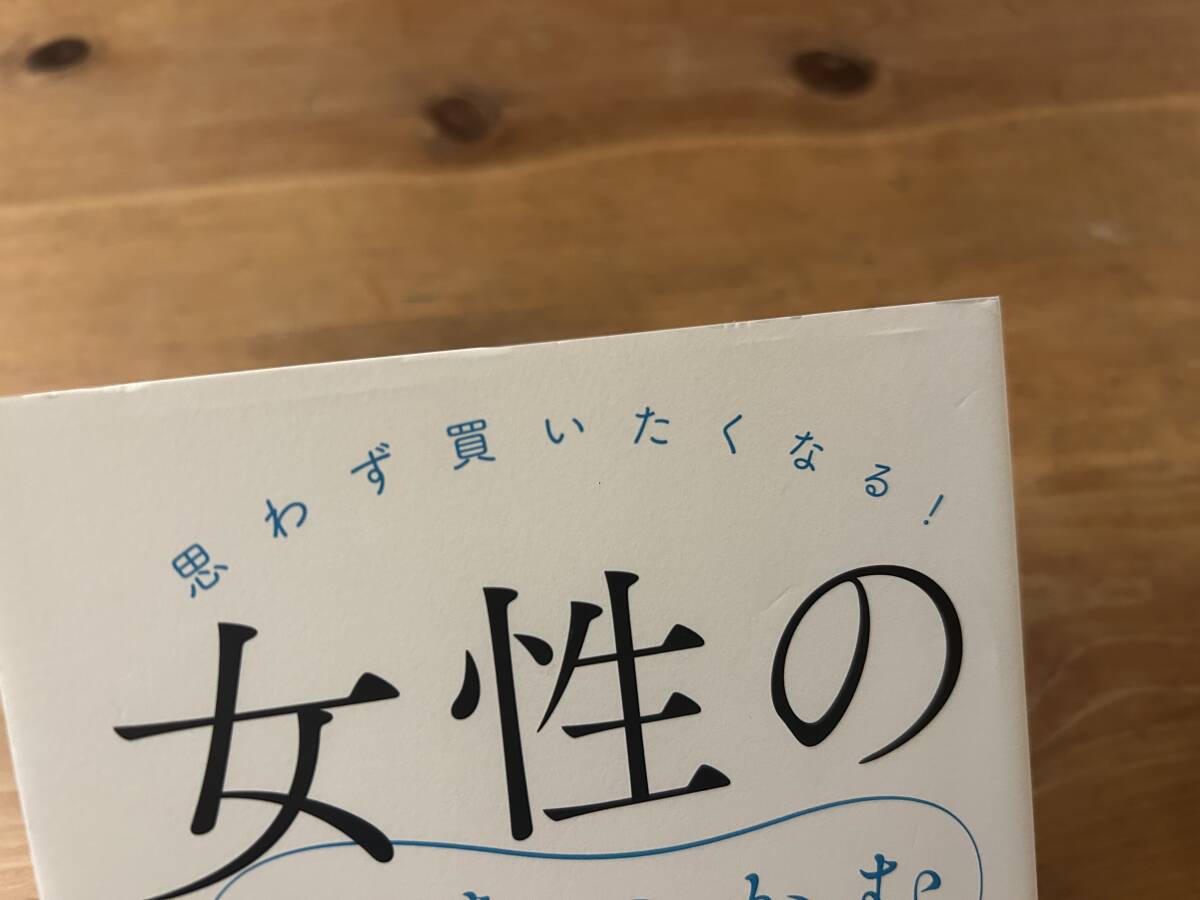 思わず買いたくなる!
女性の